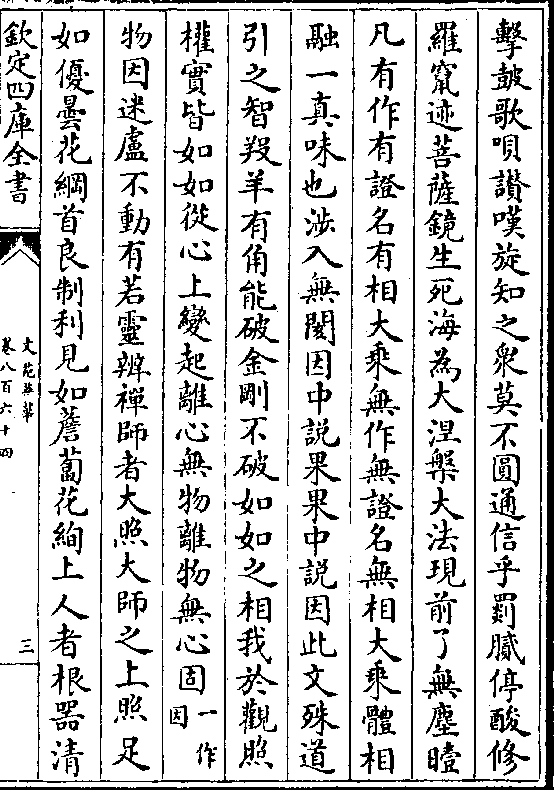 擊皷歌唄讃嘆旋知之衆莫不圓通信乎罽膩停酸修
羅竄迹菩薩鏡生死海為大涅槃大法現前了無塵曀
凡有作有證名有相大乘無作無證名無相大乘體相
融一真味也涉入無閡因中說果果中說因此文殊道
引之智羖羊有角能破金剛不破如如之相我於觀照
權實皆如如從心上變起離心無物離物無心固一作因
物因迷盧不動有若靈辨禪師者大照大師之上照足
如優曇花綱首良制利見如薝蔔花絢上人者根器清
欽定四庫全書
文苑英華
卷八百六十四
三